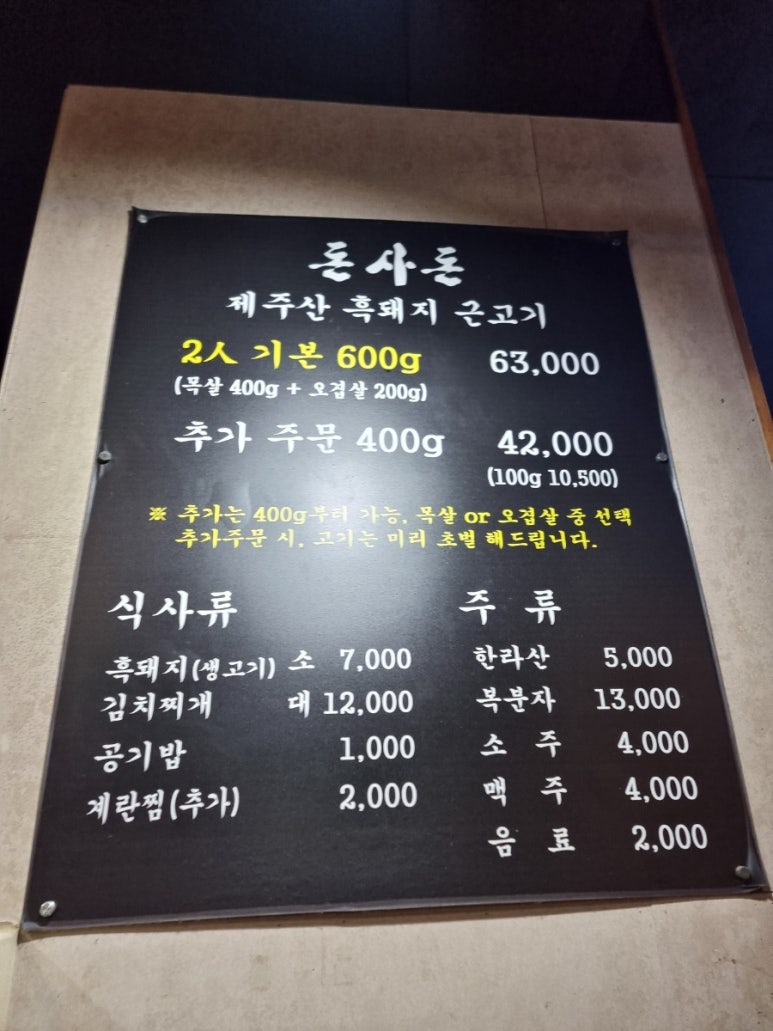 돈사돈
제주산 흑돼지 근고기
2人 기본 600g 63,000
(목살 400g + 오겹살 200g)
추가 주문 400g 42,000
(100g 10,500)
※ 추가는 400g부터 가능, 목살 or 오겹살 중 선택
추가주문 시, 고기는 미리 초벌 해드립니다.
식사류
흑돼지(생고기) 소 7,000
김치찌개 대 12,000
공기밥 1,000
계란찜(추가) 2,000
주 류
한라산 5,000
복분자 13,000
소 주 4,000
맥 주 4,000
음 료 2,000